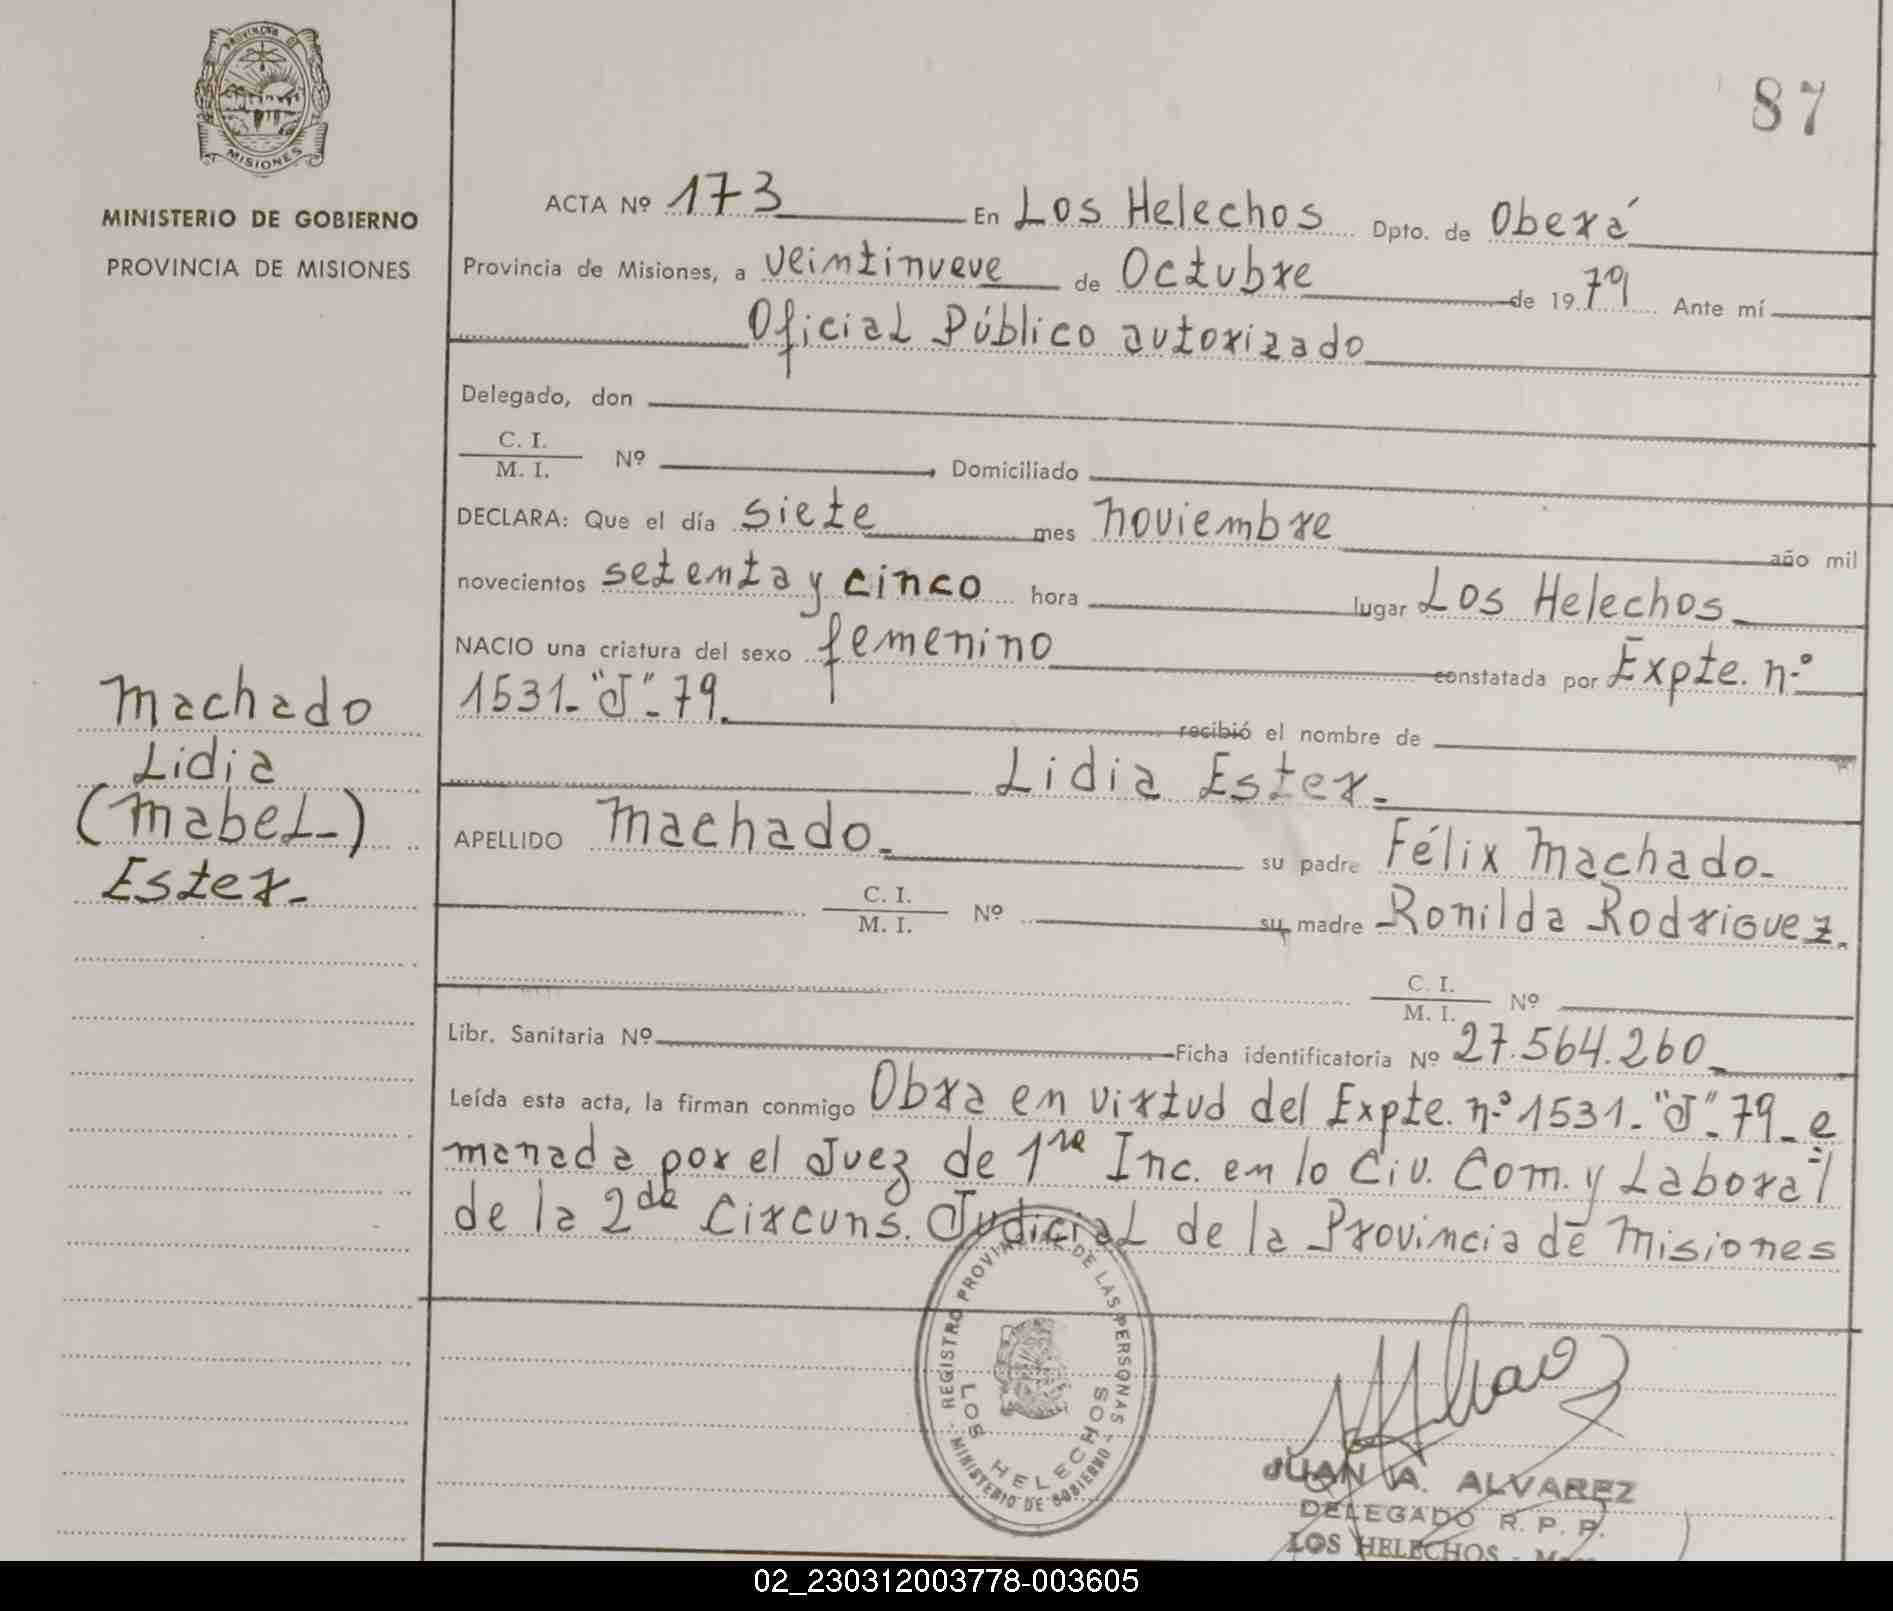 PROVINCIA DE
MISIONES
MINISTERIO DE GOBIERNO
PROVINCIA DE MISIONES
87
ACTA Nº 173 En Los Helechos Dpto. de Oberá
Provincia de Misiones, a veintinueve de Octubre de 1979 Ante mí
Oficial Público autorizado
Delegado, don
C. I.
M. I. Nº , Domiciliado
DECLARA: Que el día siete mes noviembre año mil
novecientos setenta y cinco hora lugar Los Helechos
NACIO una criatura del sexo femenino constatada por Expte. n.º
1531-"J"-79. recibió el nombre de
Lidia Ester.-
APELLIDO Machado.- su padre Félix Machado.-
C. I.
M. I. Nº su madre Ronilda Rodriguez.
C. I.
M. I. Nº
Libr. Sanitaria Nº Ficha identificatoria Nº 27.564.260
Leída esta acta, la firman conmigo Obra en virtud del Expte. n.º 1531-"J"-79- e
manada por el Juez de 1ra Inc. en lo Civ. Com. y Laboral
de la 2da Circuns. Judicial de la Provincia de Misiones
Machado
Lidia
(Mabel-)
Ester.-
REGISTRO PROVINCIAL DE LAS PERSONAS
LOS HELECHOS
- MINISTERIO DE GOBIERNO -
JUAN A. ALVAREZ
DELEGADO R. P. P.
LOS HELECHOS -
02_230312003778-003605